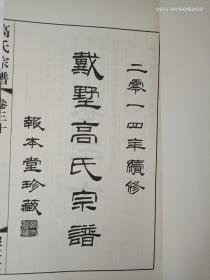 二零一四年續修
戴墅高氏宗譜
報本堂珍藏
高氏宗譜
卷三十